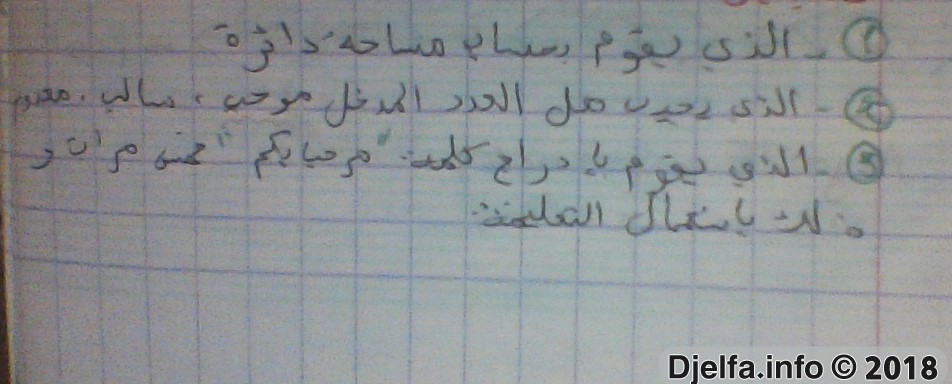 ① - الذي يقوم بحساب مساحة دائرة
② - الذي يجيب هل العدد المدخل موجب، سالب، معدوم
③ - الذي يقوم بإدراج كلمة "مرحبا بكم" خمس مرات و
ذلك باستعمال التعليمة
Djelfa.info © 2018